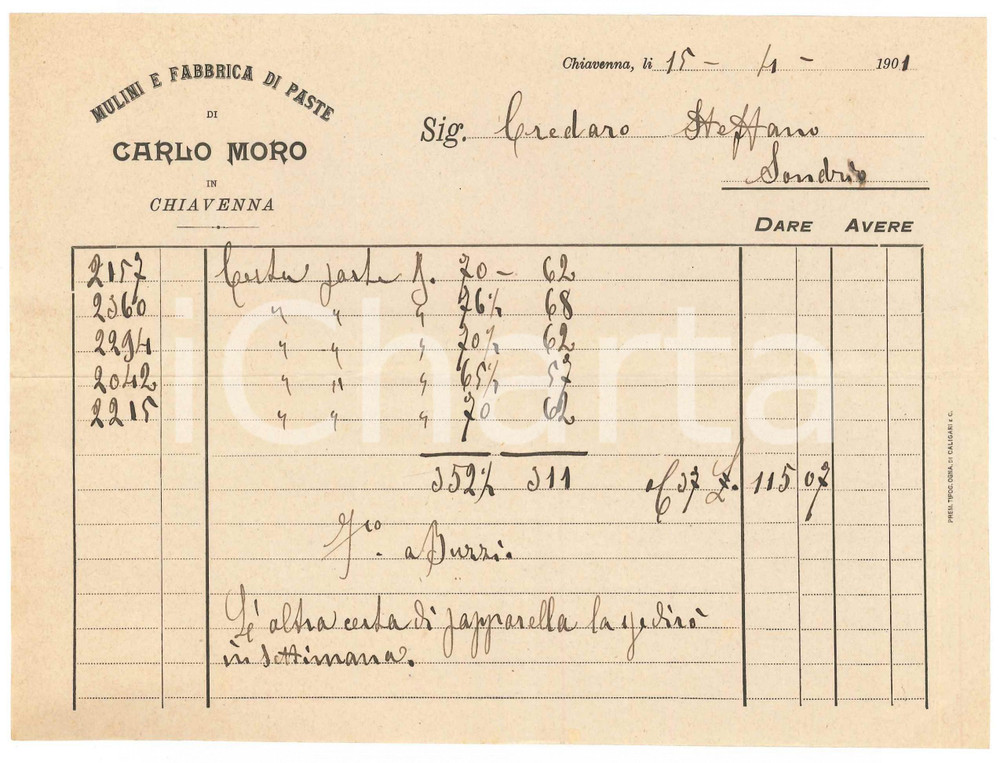 MULINI E FABBRICA DI PASTE
DI
CARLO MORO
IN
CHIAVENNA
Chiavenna, li 15 - 4 - 1901
Sig. Credaro Steffano
Sondrio
DARE AVERE
2157 Cesta paste 70 - 62
2360 " " " 76½ 68
2294 " " " 70½ 62
2042 " " " 65½ 57
2215 " " " 70 62
352½ 311 £ 37 £. 115 07
a Buzzi.
L'altra cesta di papparella la spedirò
in settimana.
PREM. TIPOG. ODNA. DI CALIGARI & C.
iCharta